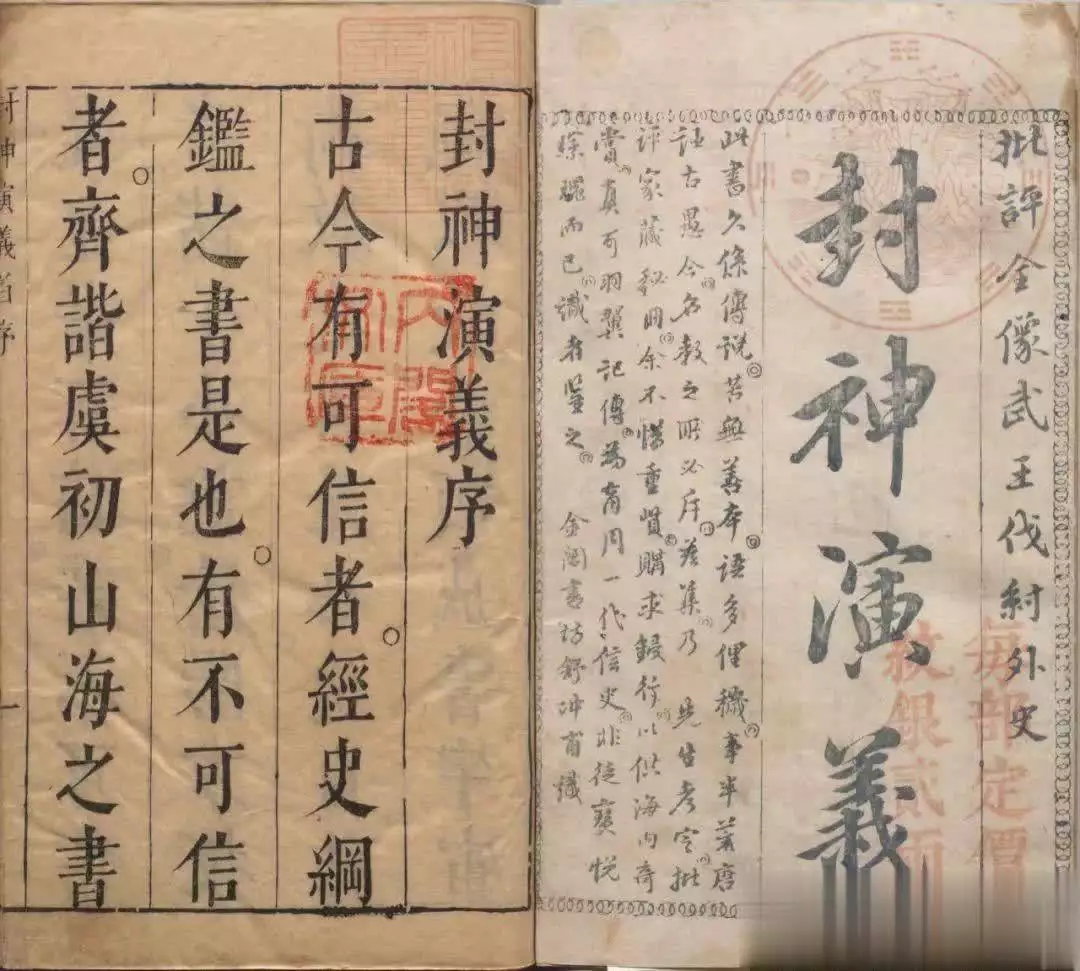 批評全像武王伐紂外史
封神演義
每部定價
紋銀貳兩
此書久係傳說苦無善本語多俚穢事半荒唐
誣古愚今名教之所必斥茲集乃 先生考定批
評家藏秘冊余不惜重貲購求鋟行以供海內奇
賞真可羽翼記傳為商周一代信史非徒寶悅
琛瑰而已識者鑒之 金閶書坊舒冲甫識
封神演義序
古今有可信者。經史綱
鑑之書是也。有不可信
者。齊諧虞初山海之書
封神演義 序 一
內閣文庫